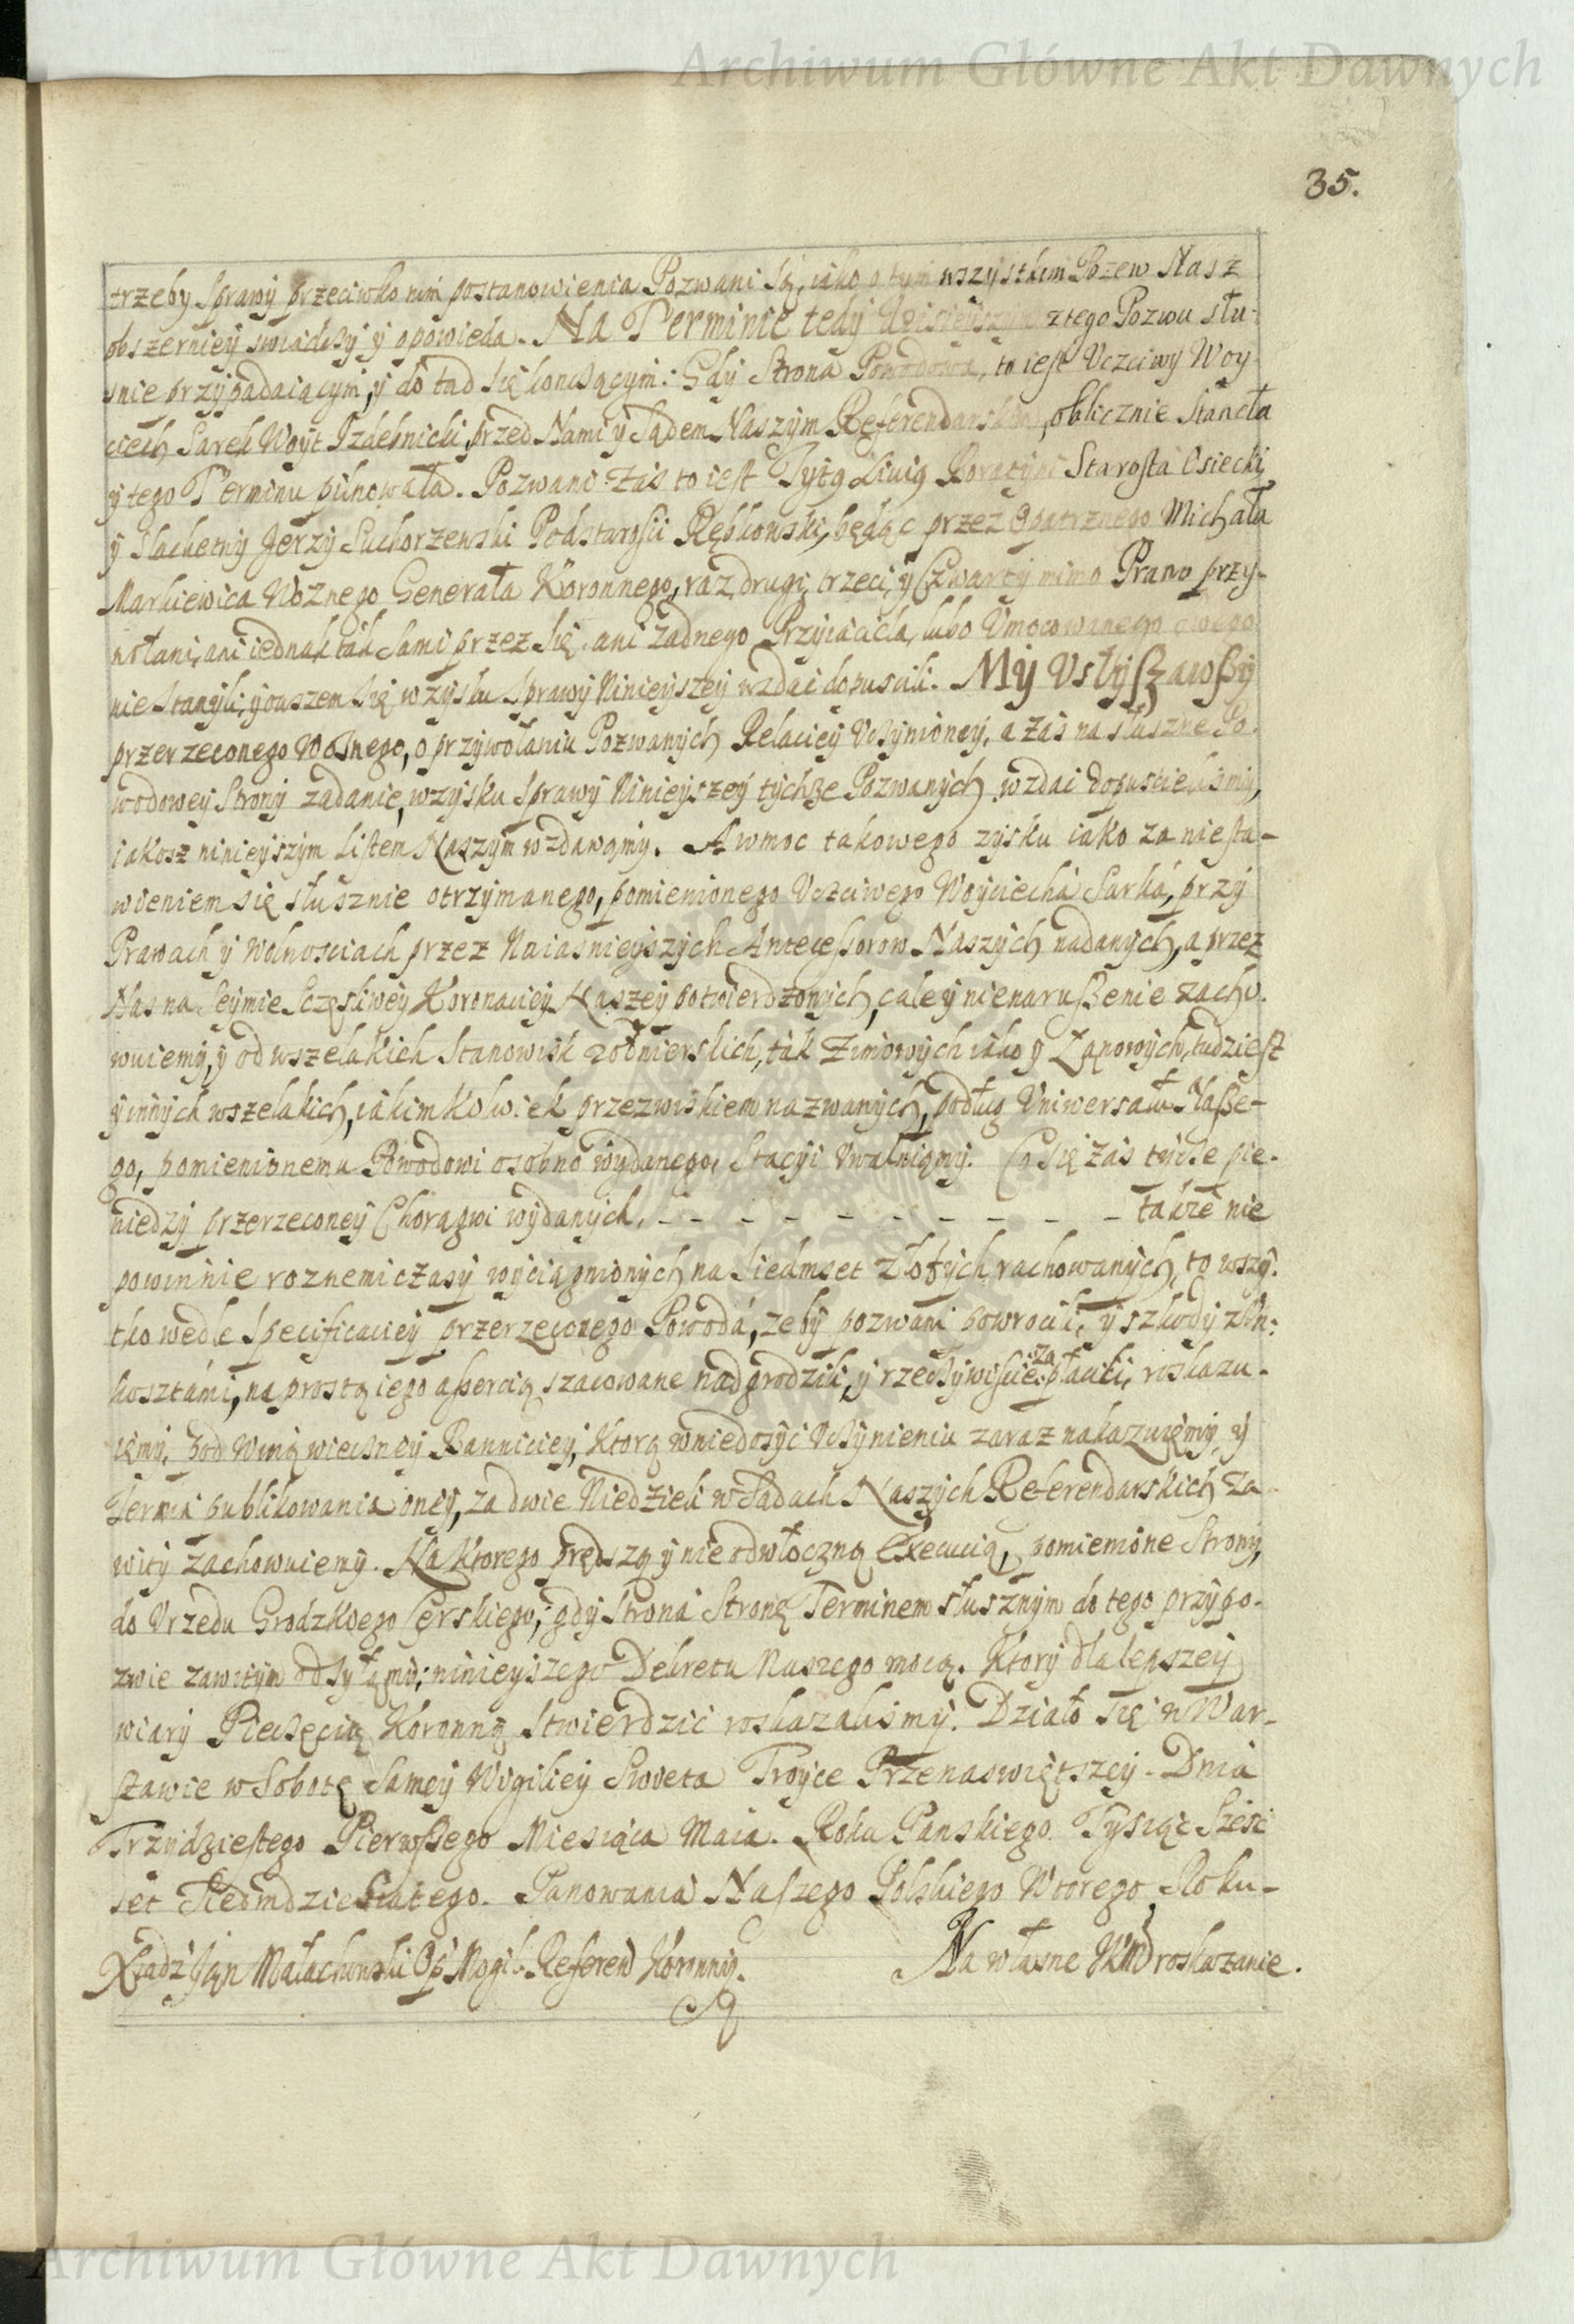 Archiwum Główne Akt Dawnych
35.
trzeby sprawy przeciwko nim postanowienia Pozwani są, iako o tym wszystkim Pozew Nasz
obszerniey swiadczy y opowieda. Na Terminie tedy dzisieyszym z tego Pozwu słu-
sznie przypadaiącym, y do tąd się konczącym: Gdy Strona Powodowa, to iest Vczciwy Woy-
ciech Sarek Woyt Izdebnicki, przed Nami y Sądem Naszym Referendarskim, oblicznie Stanęła
y tego Terminu pilnowała. Pozwani zas to iest Tytg Liuig Boratyni Starosta Osiecki
y Slachetny Jerzy Suchorzewski Podstarosci Rębkowski, będąc przez Opatrznego Michała
Markiewica Woznego Generała Koronnego, raz, drugi, trzeci, y Czwarty mimo Prawo przy-
wołani, ani iednak tak sami przez się, ani żadnego Przyiaciela, lubo Vmocowanego swego
nie stanęli, y owszem się w zysku sprawy Ninieyszey wzdać dopuscili. My Vsłyszawszy
przerzeconego Woznego, o przywołaniu Pozwanych Relaciey Vczynioney, a zas na słuszne Po-
wodowey Strony żądanie, w zysku sprawy Ninieyszey tychże Pozwanych wzdać dopuscielismy,
iakosz ninieyszym Listem Naszym wzdawamy. A w moc takowego zysku iako za niesta-
wieniem się słusznie otrzymanego, pomienionego Vczciwego Woyciecha Sarka, przy
Prawach y Wolnosciach przez Naiasnieyszych Antecessorow Naszych nadanych, a przez
Nas na Seymie Sczęsliwey Koronaciey Naszey potwierdzonych, cale y nienaruszenie zacho-
wuiemy, y od wszelakich Stanowisk żołnierskich, tak Zimowych iako y Łanowych, tudziesz
y innych wszelakich, iakimkolwiek przezwiskiem nazwanych, podług Vniwersału Nasze-
go, pomienionemu Powodowi osobno wydanego, Stacyi Vwalniamy. Co się zas tycze pie-
niedzy przerzeconey Chorągwi wydanych, - - - - - - - - - - także nie
powinnie roznemi czasy wyciągnionych na siedmset złotych rachowanych, to wszy-
tko wedle specificaciey przerzeconego Powoda, zeby pozwani powrocili, y szkody z Vn-
kosztami, na prostą iego assercią szacowane nadgrodzili, y rzeczywiscie :za: płacili, roskazu-
iemy, Pod Winą wieczney Banniciey, Ktorą w niedosyć Vczynieniu zaraz nakazuiemy, y
Termin publikowania oney, za dwie Niedzieli w Sądach Naszych Referendarskich za-
wity zachowuiemy. Na Ktorego prędszą y nie odwłoczną Execucią, pomienione Strony,
do Vrzedu Grodzkiego Czerskiego, gdy Strona Stronę Terminem słusznym do tego przypo-
zwie zawitym odsyłamy; ninieyszego Dekretu Naszego mocą. Ktory dla lepszey
wiary Pieczęcią Koronną stwierdzić roskazalismy. Działo się w War-
szawie w Sobotę Samey Wigiliey Swieta Troyce Przenaswiętszey. Dnia
Trzydziestego Pierwszego Miesiąca Maia. Roku Panskiego Tysiąc Szesc
set Siedmdziesiatego. Panowania Naszego Polskiego Wtorego Roku-
Xsiądz Jan Małachowski Op. Mogil. Referend Koronny.
Na własne JKM roskazanie.
Archiwum Główne Akt Dawnych